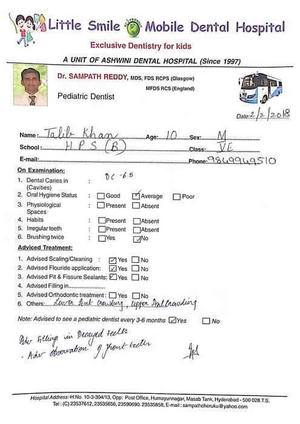 Little Smile Mobile Dental Hospital
Exclusive Dentistry for kids
A UNIT OF ASHWINI DENTAL HOSPITAL (Since 1997)
Dr. SAMPATH REDDY, MDS, FDS RCPS (Glasgow)
MFDS RCS (England)
Pediatric Dentist
Date: 2/2/2018
Name: Talib Khan Age: 10 Sex: M
School: H P S (B) Class: VE
E-mail: Phone: 9849949510
On Examination:
1. Dental Caries in (Cavities) DC - 65
2. Oral Hygiene Status : Good Average Poor
3. Physiological Spaces : Present Absent
4. Habits : Present Absent
5. Irregular teeth : Present Absent
6. Brushing twice : Yes No
Adviced Treatment:
1. Advised Scaling/Cleaning : Yes No
2. Advised Flouride application: Yes No
3. Advised Pit & Fissure Sealants: Yes No
4. Advised Filling in
5. Advised Orthodontic treatment : Yes No
6. Others: Lower Ant crowding, upper Ant crowding
Note: Advised to see a pediatric dentist every 3-6 months Yes No
Adv filling in Decayed teeth
- Adv observation of front teeth
Hospital Address: H.No. 10-3-304/13, Opp: Post Office, Humayunnagar, Masab Tank, Hyderabad - 500 028 T.S.
Tel: (C) 23537612, 23535656, 23590690, 23535858, E-mail: sampathchoruku@yahoo.com